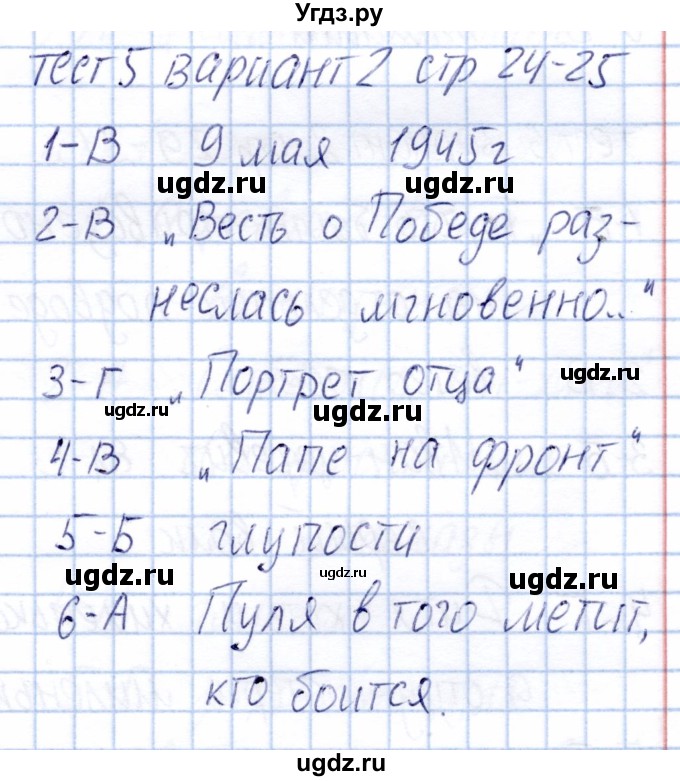 Угдз.ру
Тест 5 вариант 2 стр 24-25
1-В 9 мая 1945г
ugdz.ru ugdz.ru
2-В „Весть о Победе раз-
ugdz.ru
неслась мгновенно..“
3-Г „Портрет отца“ ugdz.ru
ugdz.ru ugdz.ru
4-В „Папе на фронт“
5-Б глупости
ugdz.ru ugdz.ru ugdz.ru
6-А Пуля в того метит,
кто боится.
ugdz.ru
ugdz.ru